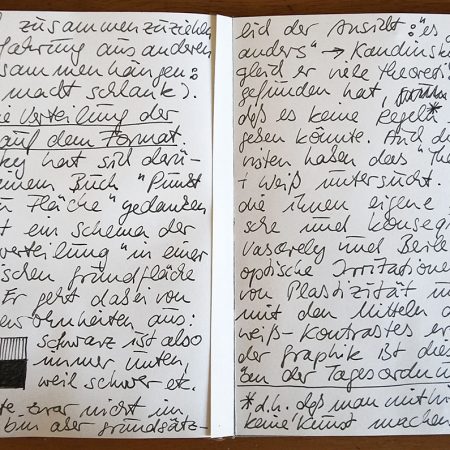 zusammenzuziehen
fahrung aus anderen
sammenhängen:
macht schlank).
ie Verteilung der
auf dem Format
ky hat sich darü-
einem Buch "Punkt
Fläche" gedanken
t ein schema der
verteilung" in einer
ischen grundfläche
Er geht dabei von
ewohnheiten aus:
schwarz ist also
immer unten,
weil schwer etc.
te zwar nicht im
bin aber grundsätz-
lich der Ansicht: "es g
anders" → Kandinsk
gleich er viele Theori
gefunden hat,
dß es keine Regeln*
geben könnte. Auch di
nsten haben das "The
+ weiß untersucht.
die ihnen eigene
sche und konseq
Vasarely und Berke
optische Irritatione
von Plastizität u
mit den Mitteln d
weiß-Kontrastes er
der graphik ist dies
an der Tagesordnu
*d.h. dß man mit
keine Kunst machen